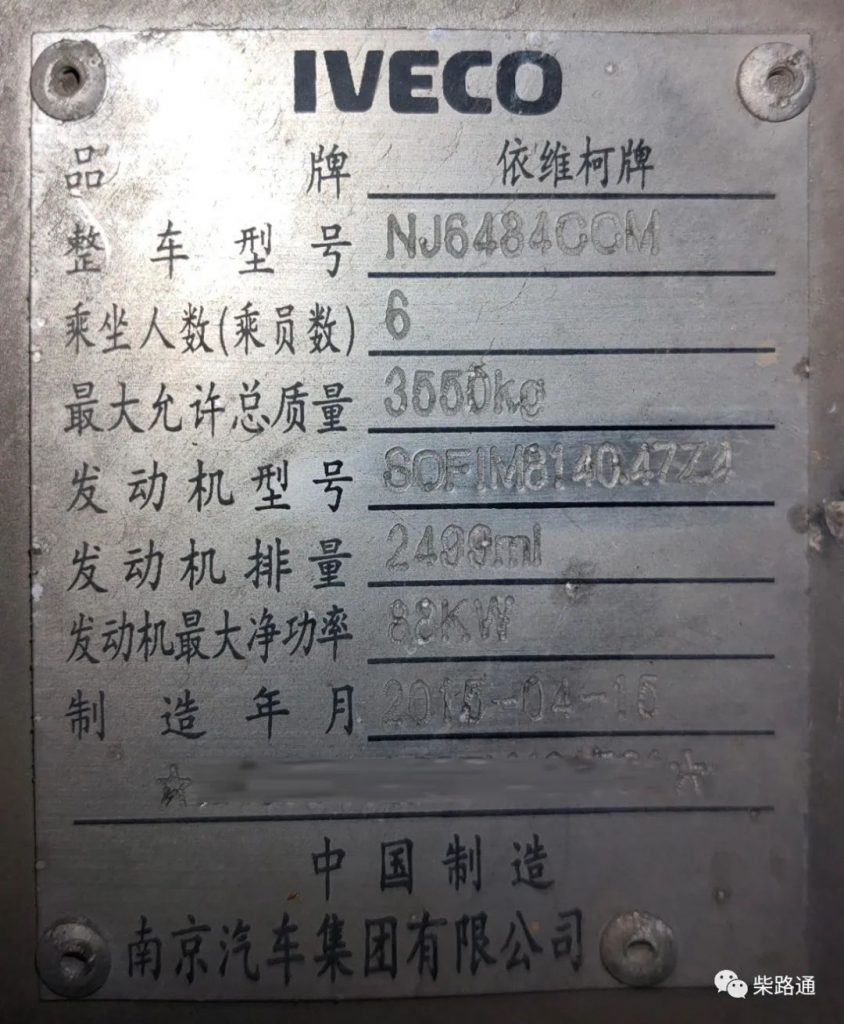 IVECO
品牌 依维柯牌
整车型号 NJ6484CCM
乘坐人数(乘员数) 6
最大允许总质量 3550kg
发动机型号 SOFIM8140.47Z4
发动机排量 2499ml
发动机最大净功率 88KW
制造年月 2015-04-15
中国制造
南京汽车集团有限公司
柴路通